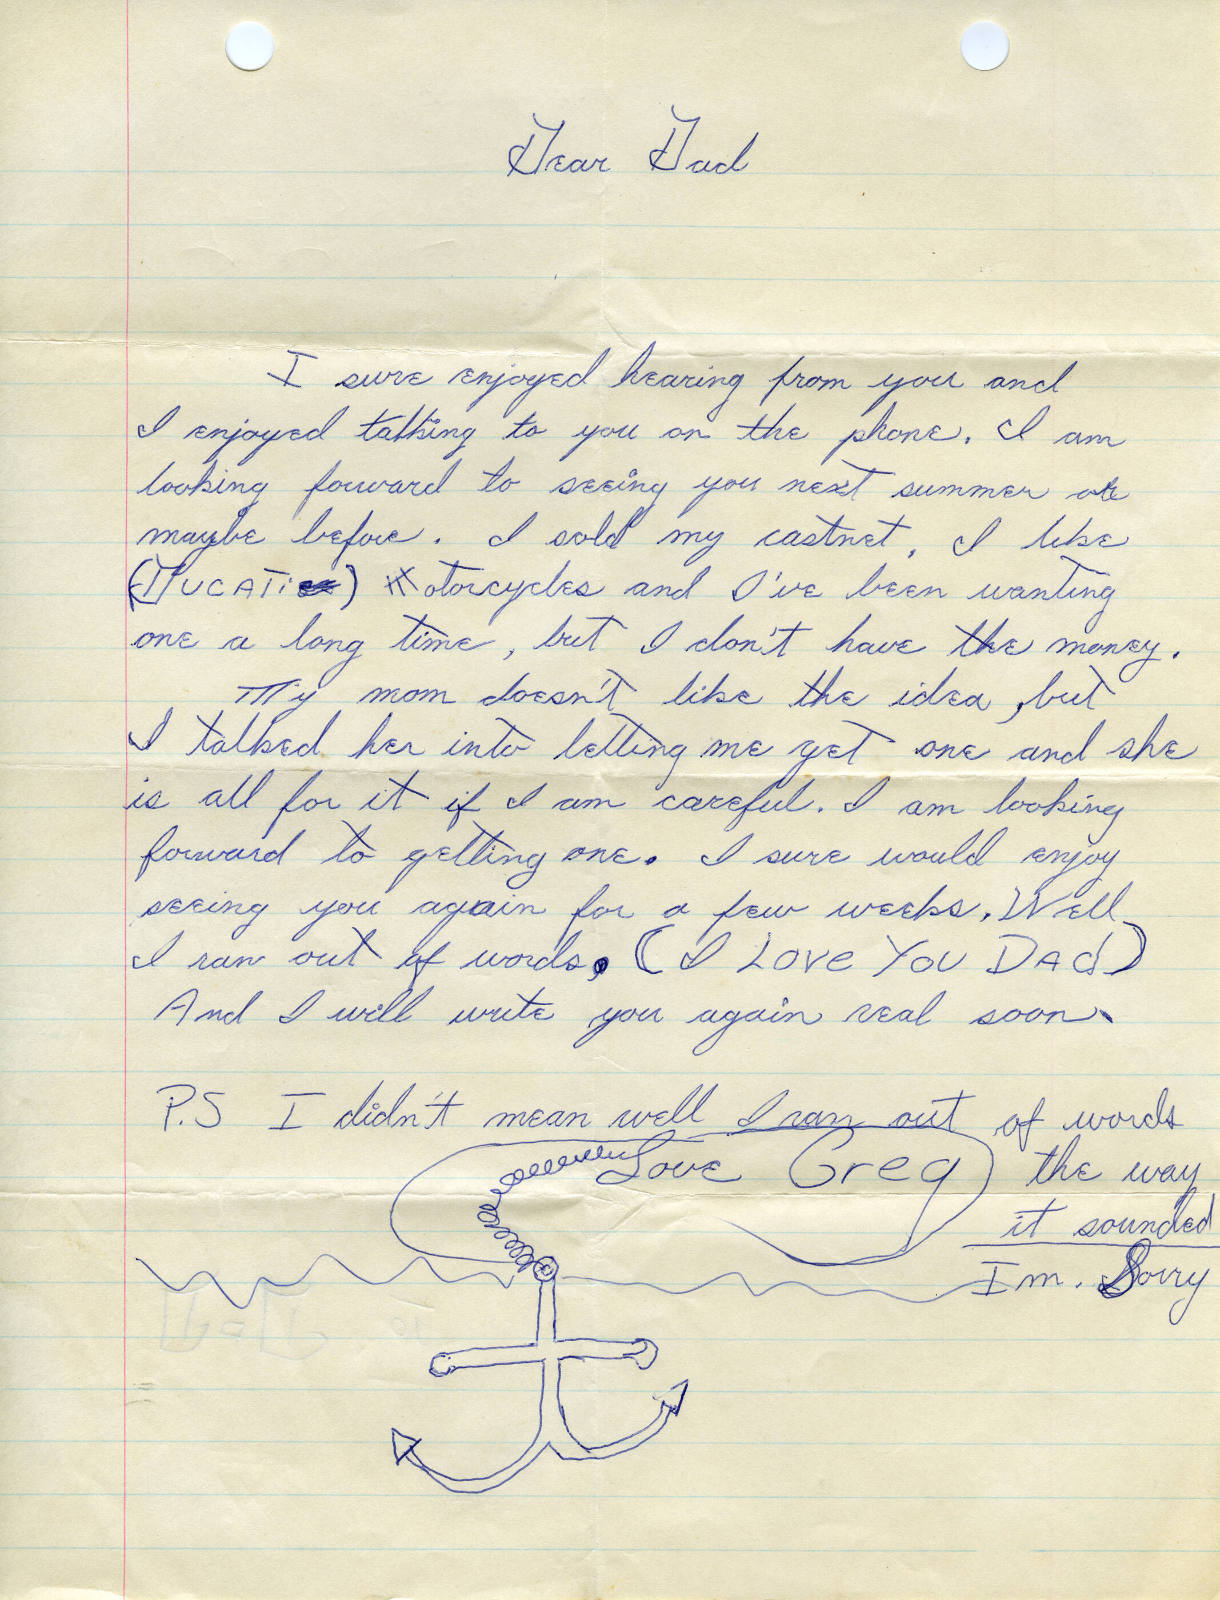 Dear Dad
I sure enjoyed hearing from you and
I enjoyed talking to you on the phone. I am
looking forward to seeing you next summer or
maybe before. I sold my castnet, I like
(DUCATI) Motorcycles and I've been wanting
one a long time, but I don't have the money.
My mom doesn't like the idea, but
I talked her into letting me get one and she
is all for it if I am careful. I am looking
forward to getting one. I sure would enjoy
seeing you again for a few weeks. Well
I ran out of words. (I Love You Dad)
And I will write you again real soon.
P.S I didn't mean well I ran out of words
the way
it sounded
Im. Sorry
Love Greg